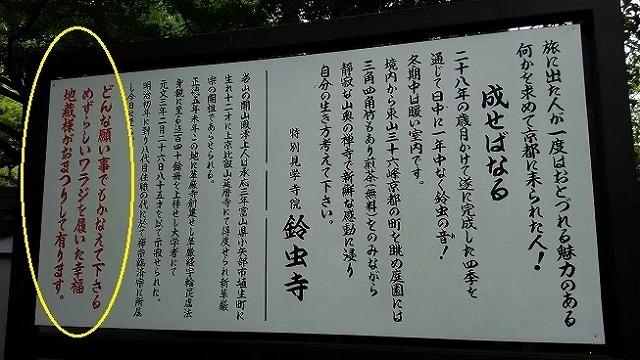 旅に出た人が一度はおとづれる魅力のある
何かを求めて京都に来られた人!
成せばなる
二十八年の歳月かけて遂に完成した四季を
通じて日中に一年中なく鈴虫の音!
冬期中は暖い室内です。
境内から東山三十六峰京都の町を眺め庭園には
三角四角竹もあり煎茶(無料)をのみながら
静寂な山奥の禅寺で新鮮な感動に浸り
自分の生き方考えて下さい。
特別見学寺院 鈴虫寺
当山の開山鳳潭上人は承応三年富山県小矢部市埴生町に
生れ十二才に上京比叡山延暦寺にて得度せられ新華厳
宗の開祖であらせられる。
正徳五年末年この地に華厳寺創業せし華厳経宇輪毘盧法
身観に至る迄百四十餘冊を上梓せし大学者にて
元文三年二月二十六日八十五才を以て示寂せられた。
明治初年に到り八代目住職の代に於て禅宗臨済宗に所属
し今日に
どんな願い事でもかなえて下さる
めずらしいワラジを履いた幸福
地蔵様がおまつりして有ります。